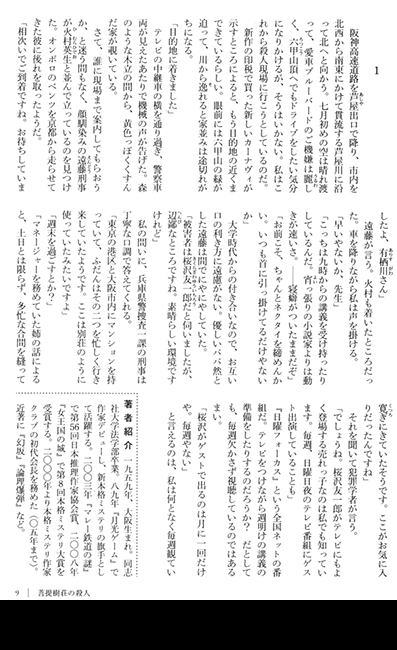 1
阪神高速道路を芦屋出口で降り、市内を
北西から南東にかけて貫流する芦屋川に沿
って北へと向かう。七月初めの空は晴れ渡
って、愛車ブルーバードのご機嫌は麗し
く、六甲山頂へでもドライブをしたい気分
になりかけるが、そうはいかない。私はこ
れから殺人現場に行こうとしているのだ。
新作の印税で買った新しいカーナヴィが
示すところによると、もう目的地の近くま
できているらしい。眼前には六甲山の緑が
迫って、川から逸れると家並みは途切れが
ちになる。
「目的地に着きました」
テレビの中継車の横を通り過ぎ、警察車
両が見えたあたりで機械の声が告げた。森
のような木立の間から、黄色っぽくくすん
だ家が覗いている。
さて、誰に現場まで案内してもらおう
か、と迷う間もなく、顔馴染みの遠藤刑事
が火村英生と並んで立っているのを見つけ
た。オンボロのベンツを京都から走らせて
きた彼に後れを取ったようだ。
「相次いでご到着ですね。お待ちしていま
したよ、有栖川さん」
遠藤が言う。火村も着いたところだっ
た。車を降りながら私は声を掛ける。
「早いやないか、先生」
「こっちは九時からの講義を受け持ったり
しているんだ。宵っ張りの小説家よりは動
きが速いさ。――寝癖がついたままだぞ」
「お前こそ、ちゃんとネクタイを締めんか
い。いつも首に引っ掛けてるだけやない
か」
大学時代からの付き合いなので、お互い
口の利き方に遠慮がない。優しいパパ然と
した遠藤は間でにやにやしていた。
「被害者は桜沢友一郎だと伺いましたが、
辺鄙なところですね。素晴らしい環境です
けれど」
私の問いに、兵庫県警捜査一課の刑事は
丁寧な口調で答えてくれる。
「東京の港区と大阪市内にマンションを持
っていて、ふだんはその二つを忙しく行き
来していたようです。ここは別荘のように
使っていたみたいですよ」
「週末を過ごすとか?」
「マネージャーを務めていた姉の話による
と、土日とは限らず、多忙な合間を縫って
寛ぎにきていたそうです。ここがお気に入
りだったんですね」
それを聞いて犯罪学者が言う。
「でしょうね。桜沢友一郎がテレビにもよ
く登場する売れっ子なのは私でも知ってい
ます。毎週、日曜日夜のテレビ番組にゲス
ト出演していることも」
『日曜フォーカス』という全国ネットの番
組だ。テレビをつけながら週明けの講義の
準備をしたりするのだろうか? だとして
も、毎週欠かさず視聴しているのではある
まい。
「桜沢がゲストで出るのは月に一回だけ
や。毎週やない」
と言えるのは、私は何となく毎週観てい
著者紹介 一九五九年、大阪生まれ。同志
社大学法学部卒業。八九年『月光ゲーム』で
作家デビューし、新本格ミステリの旗手とし
て活躍する。二〇〇三年『マレー鉄道の謎』
で第56回日本推理作家協会賞、二〇〇八年
『女王国の城』で第8回本格ミステリ大賞を
受賞する。二〇〇〇年より本格ミステリ作家
クラブの初代会長を務めた(〇五年まで)。
近著に『長い廊下がある家』
9 | 菩提樹荘の殺人